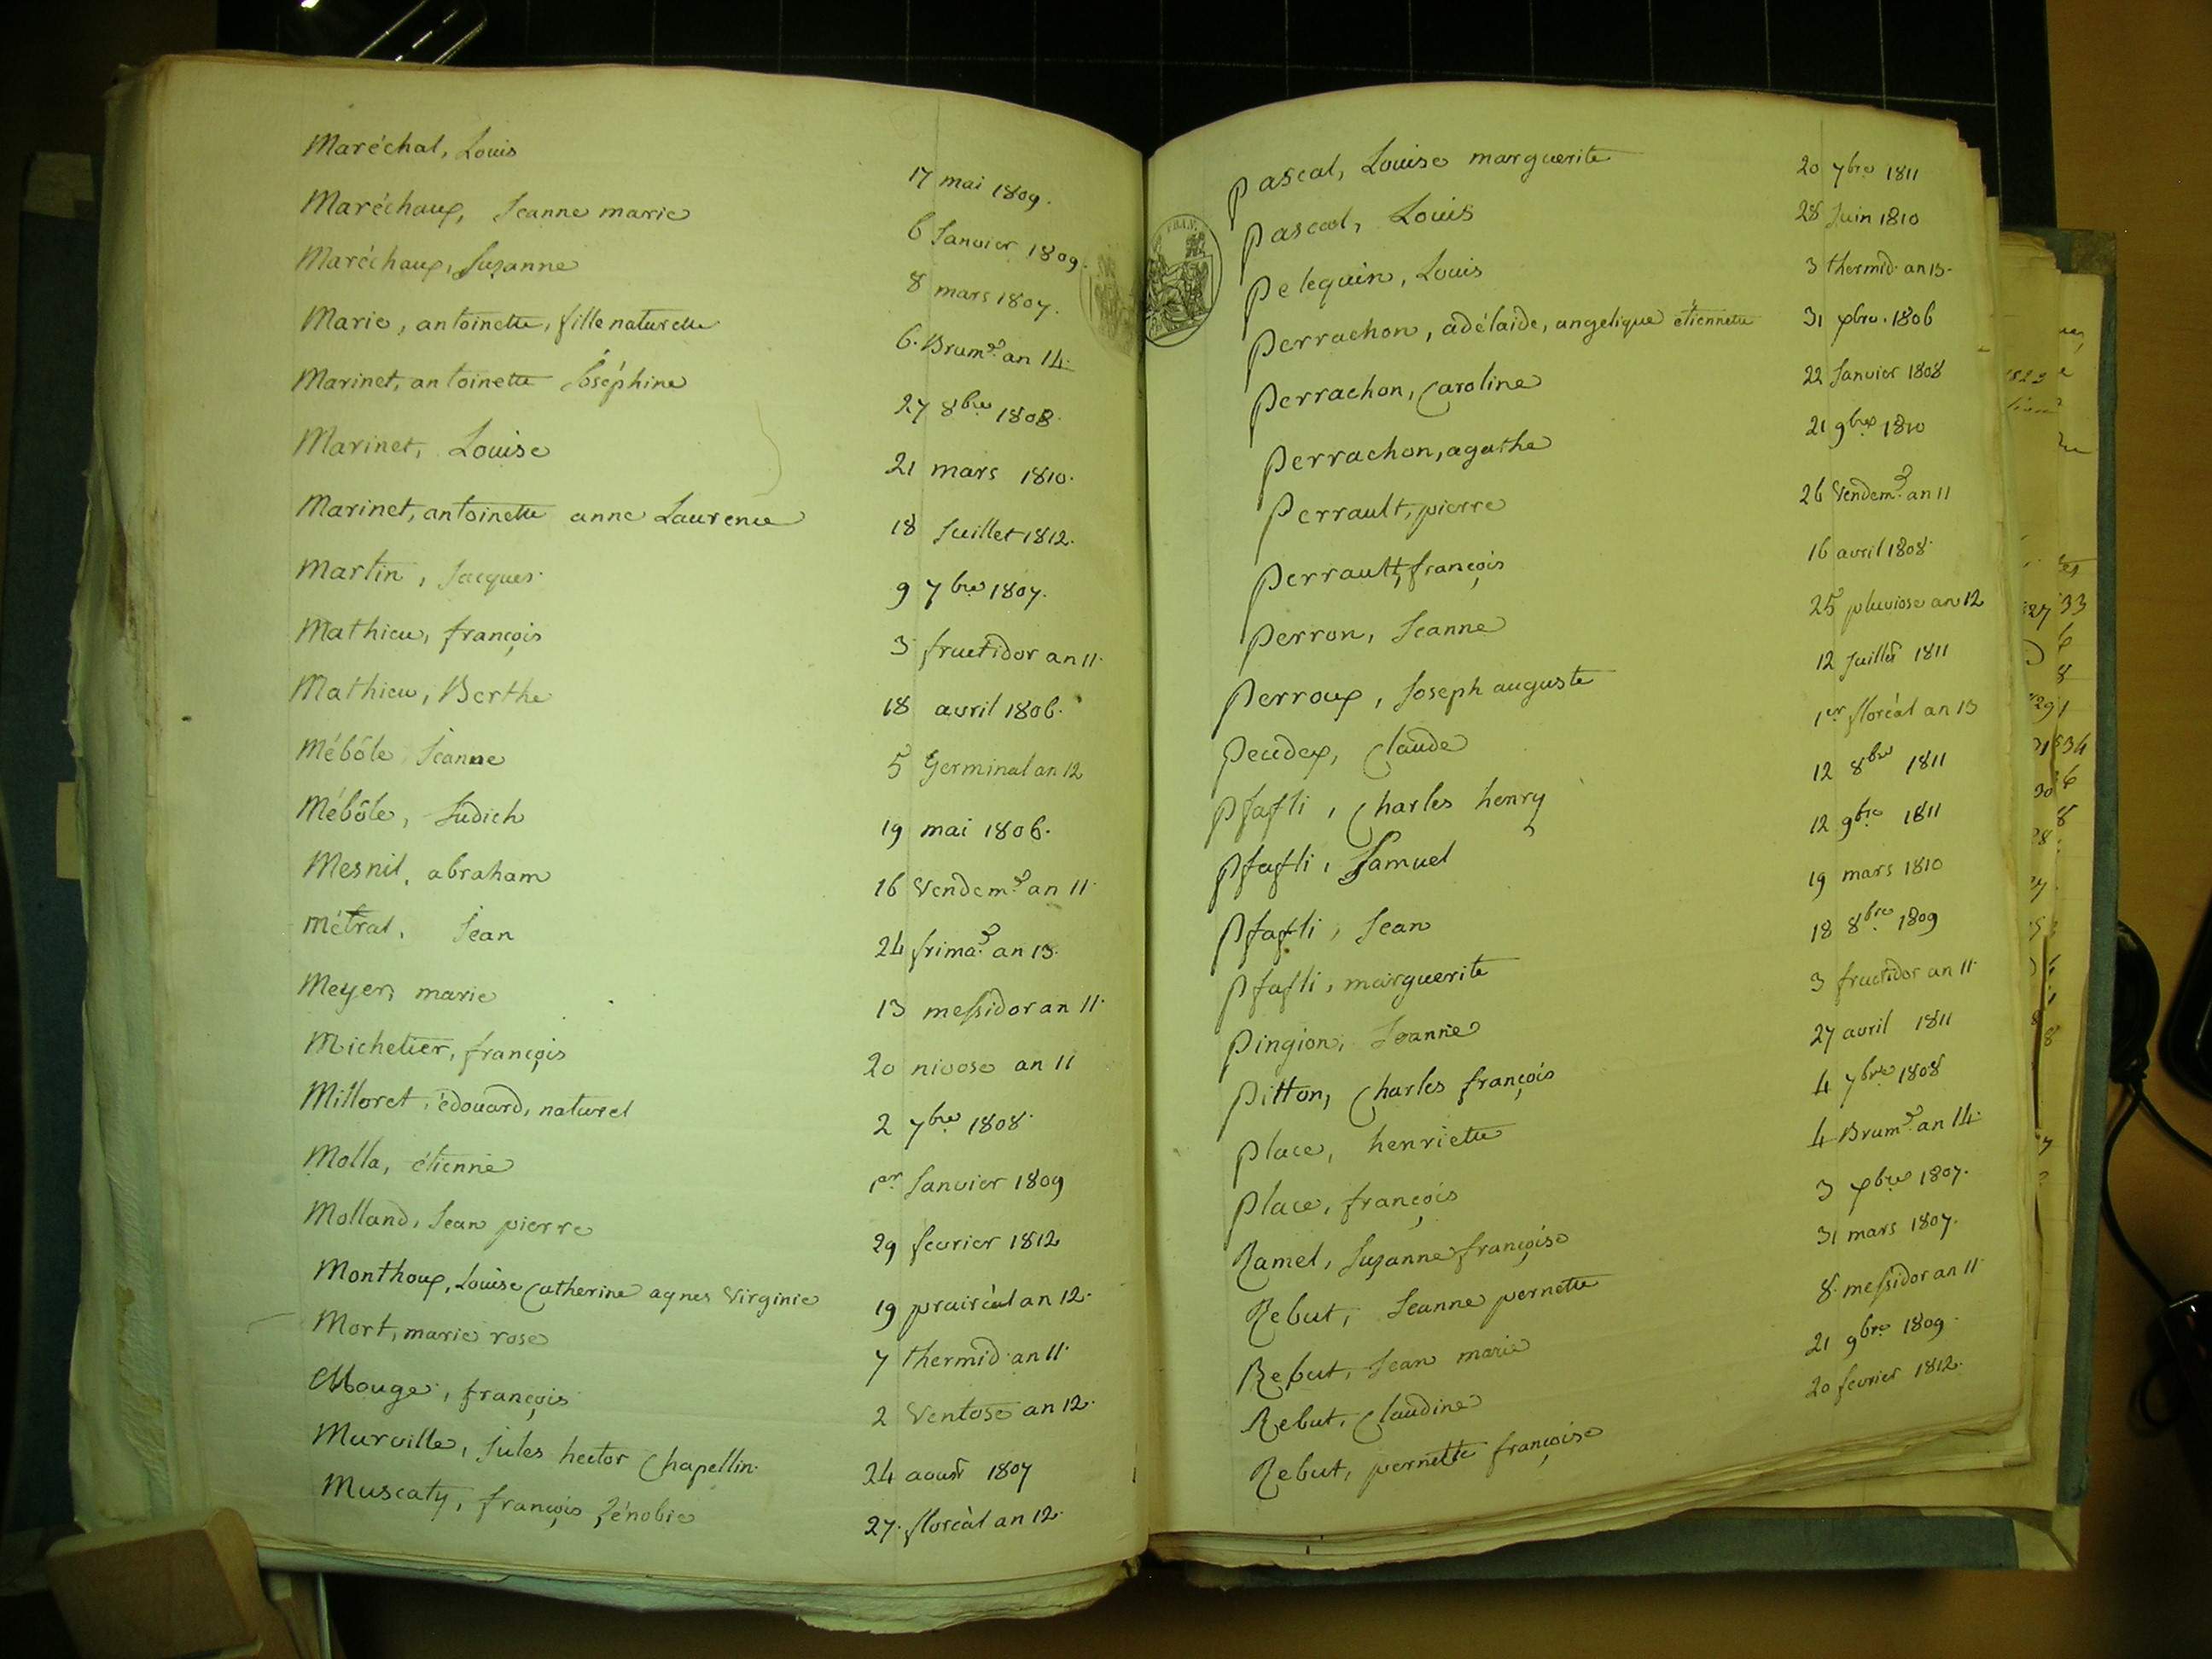 Maréchal, Louis 17 mai 1809.
Maréchaux, Jeanne marie 6 Janvier 1809.
Maréchaux, Suzanne 8 mars 1807.
Marie, antoinette, fille naturelle 6. Brum.re an 14.
Marinet, antoinette Joséphine 27 8bre 1808.
Marinet, Louise 21 mars 1810.
Marinet, antoinette anne Laurence 18 Juillet 1812.
Martin, Jacques 9 7bre 1807.
Mathieu, françois 3 fructidor an 11.
Mathieu, Berthe 18 avril 1806.
Mébôle Jeanne 5 Germinal an 12
Mébôle, Judich 19 mai 1806.
Mesnil, abraham 16 Vendem.re an 11.
Métral, Jean 24 frima.re an 13.
Meyer, marie 13 messidor an 11.
Michelier, françois 20 nivose an 11
Milloret, édouard, naturel 2 7bre 1808.
Molla, étienne 1er Janvier 1809
Molland, Jean pierre 29 fevrier 1812
Monthoux, Louise Catherine agnes Virginie 19 prairéal an 12.
Mort, marie rose 7 thermid. an 11.
Mouge, françois 2 Ventose an 12.
Murville, Jules hector Chapellin. 24 aoust 1807
Muscaty, françois Zénobie 27. floréal an 12.
FRAN.
Pascal, Louise marguerite 20 7bre 1811
Pascal, Louis 28 Juin 1810
Peleguin, Louis 3 thermid. an 13.
Perrachon, adélaide, angelique étiennette 31 xbre. 1806
Perrachon, Caroline 22 Janvier 1808
Perrachon, agathe 21 9bre 1810
Perrault, pierre 26 Vendem.re an 11
Perrault, françois 16 avril 1808.
Perron, Jeanne 25 pluviose an 12
Perroux, Joseph auguste 12 Juillet 1811
Peudex, Claude 1er floréal an 13
Pfafli, Charles henry 12 8bre 1811
Pfafli, Samuel 12 9bre 1811
Pfafli, Jean 19 mars 1810
Pfafli, marguerite 18 8bre 1809
Pingion, Jeanne 3 fructidor an 11.
Pitton, Charles françois 27 avril 1811
Place, henriette 4 7bre 1808
Place, françois 4 Brum.re an 14.
Ramel, Suzanne françoise 3 xbre 1807.
Rebut, Jeanne pernette 31 mars 1807.
Rebut, Jean marie 8. messidor an 11.
Rebut, Claudine 21 9bre 1809.
Rebut, pernette françoise 20 fevrier 1812.